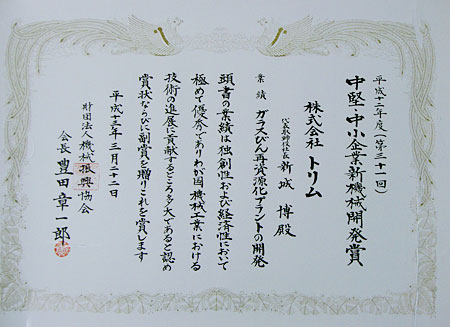 平成十二年度(第三十一回)
中堅・中小企業新機械開発賞
株式会社 トリム
代表取締役社長 新城 博 殿
業績 ガラスびん再資源化プラントの開発
頭書の業績は独創性および経済性において
極めて優秀でありわが国機械工業における
技術の進展に貢献するところ多大であると認め
賞状ならびに副賞を贈りこれを賞します
平成十三年三月二十二日
財団法人 機械振興協会
会長 豊田章一郎